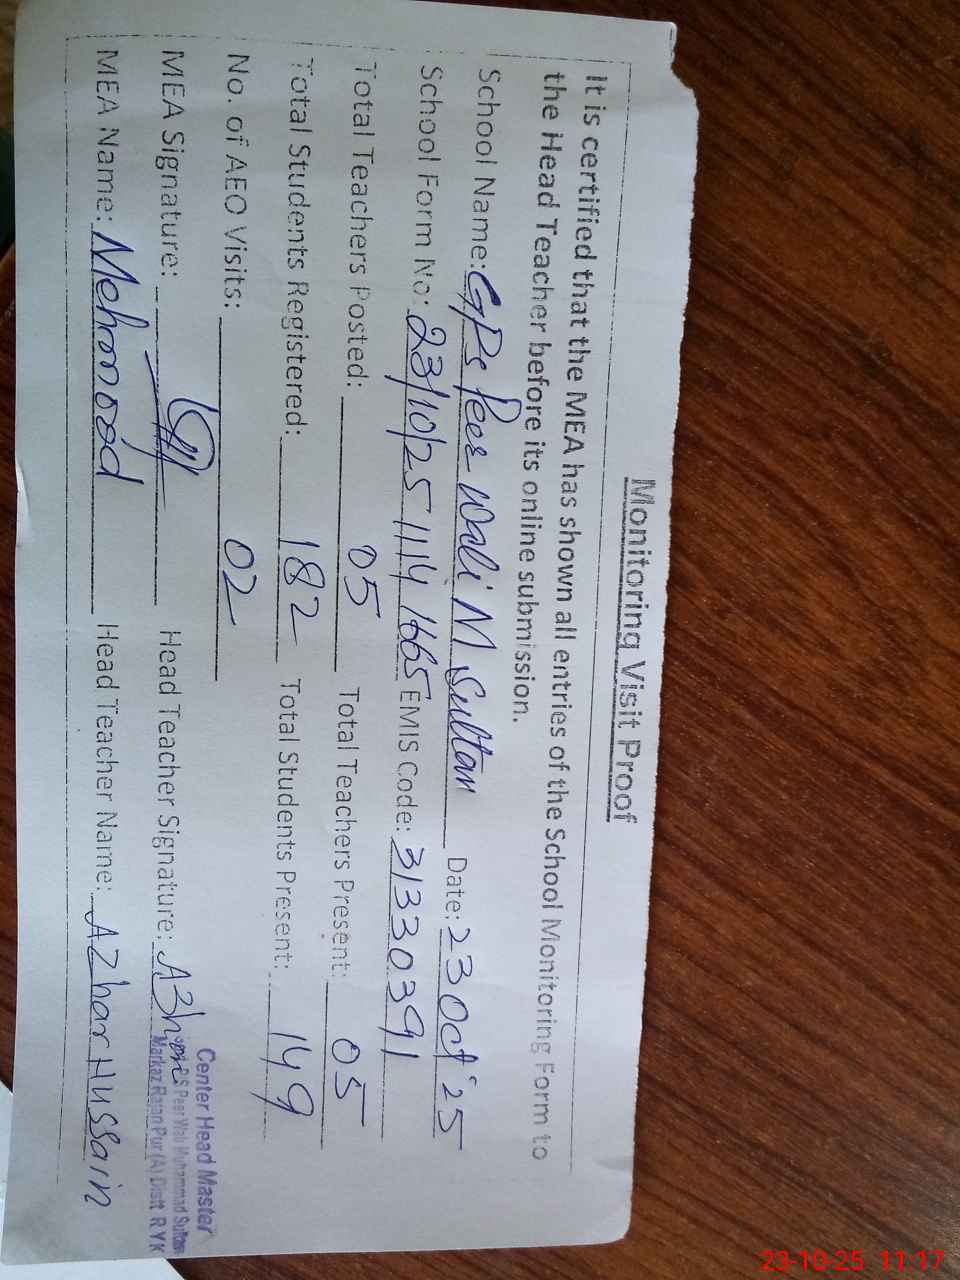 Monitoring Visit Proof
It is certified that the MEA has shown all entries of the School Monitoring Form to
the Head Teacher before its online submission.
School Name: GPS Peer Wali M Sultan Date: 23 Oct '25
School Form No: 23/10/25 1114 1665 EMIS Code: 31330391
Total Teachers Posted: 05 Total Teachers Present: 05
Total Students Registered: 182 Total Students Present: 149
No. of AEO Visits: 02
MEA Signature: Head Teacher Signature:
MEA Name: Mehmood Head Teacher Name: AZhar Hussain
Center Head Master
PS Peer Wali Muhammad Sultan
Markaz Rajan Pur (A) Distt RYK
23-10-25 11:17